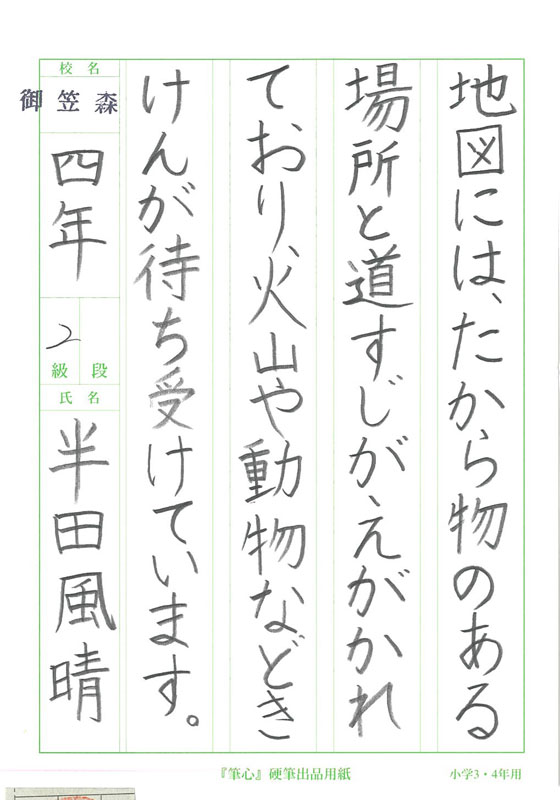 地図には、たから物のある
場所と道すじが、えがかれ
ており、火山や動物などき
けんが待ち受けています。
校名
御笠森
四年
2
級段
氏名
半田風晴
『筆心』硬筆出品用紙
小学3・4年用